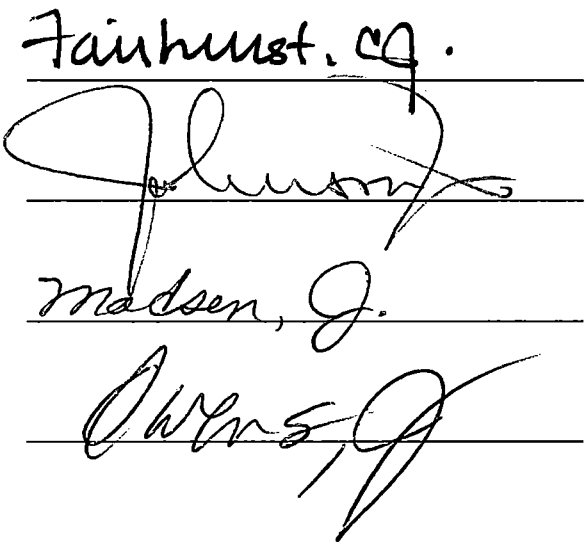 Fairhurst, CJ.
Johnson, J.
Madsen, J.
Owens, J